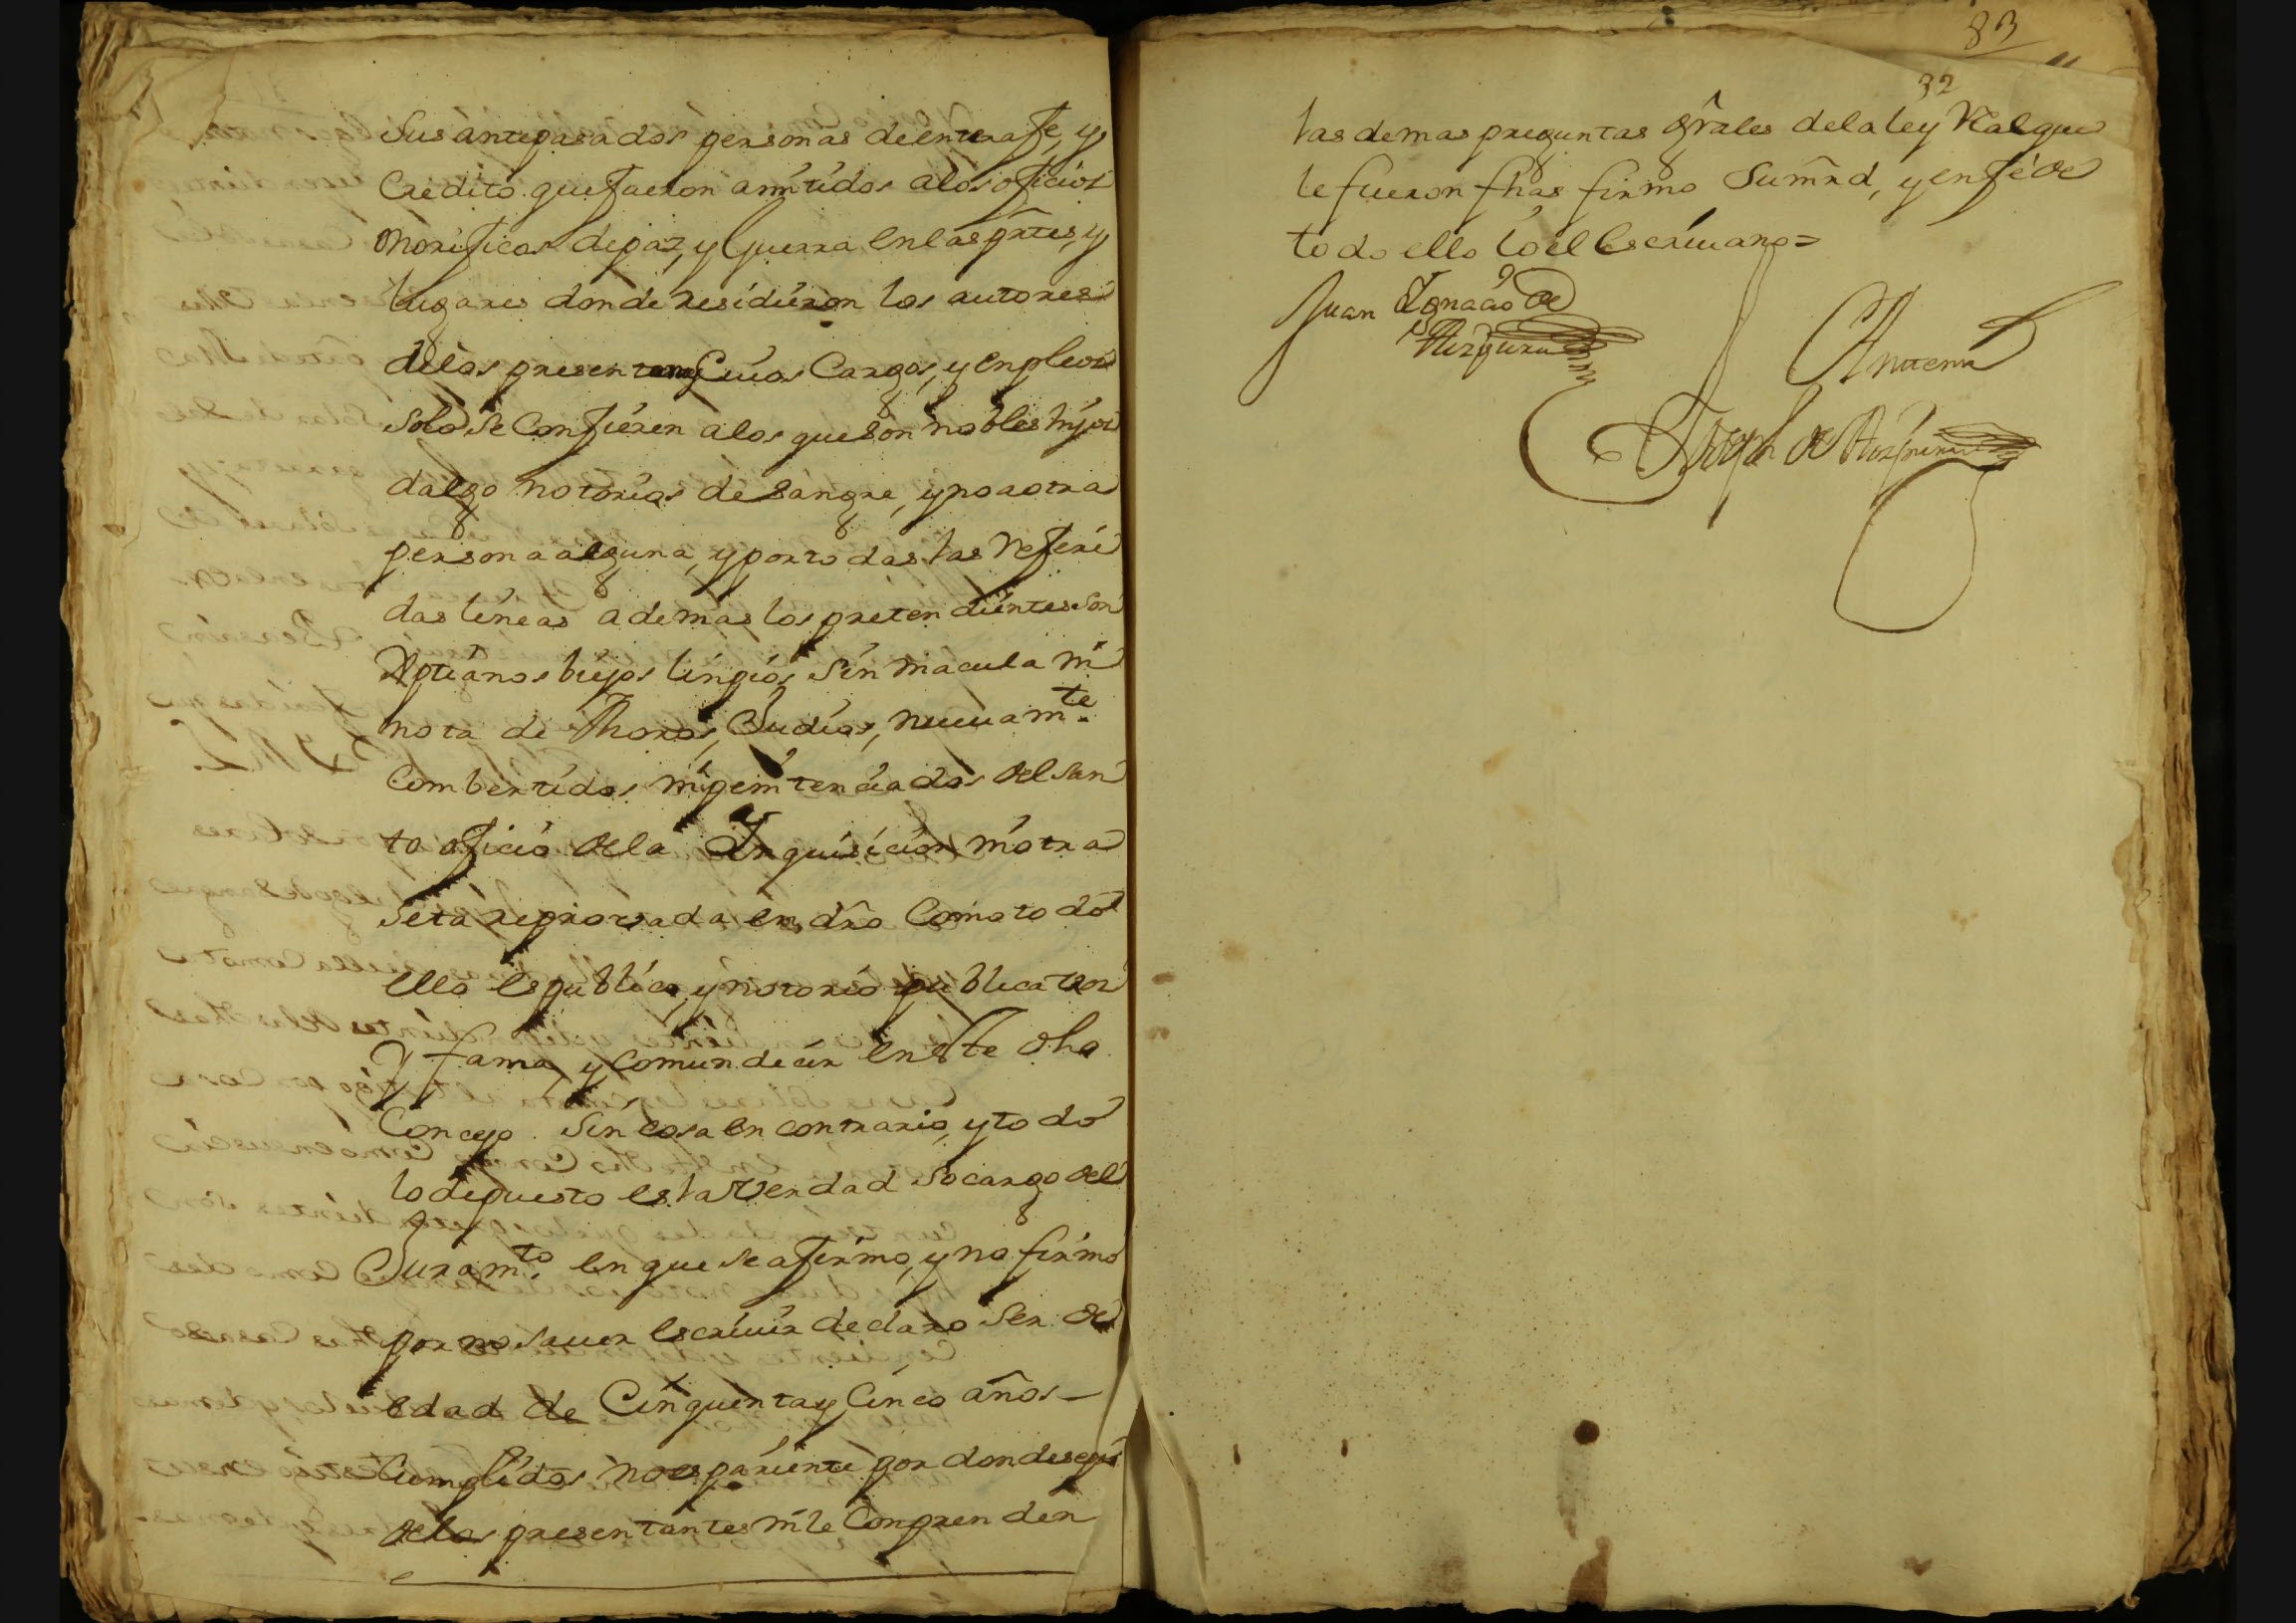 Sus antepasados personas de entera fe, y
Credito que fueron amitidos alos oficios
Onorificos de paz, y Guerra en las ptes, y
lugares donde residieron los autores
delos presentantes Cuios Cargos, y enpleos
solo se Confieren alos que son nobles hijos
dalgo notorios de sangre, y no a otra
persona alguna, y por todas las referi
das lineas ademas los pretendientes son
Xptianos biejos linpios sin macula ni
nota de Moros, Judios, nueuamte
Combertidos ni penitenciados del san
to oficio dela Inquisicion ni otra
seta reprovada en dro Como todo
ello es publico, y notorio publica voz
y fama, y comun decir en este dho
Concejo sin cosa en contrario, y todo
lo depuesto es la verdad so cargo del
Juramto en que se afirmo, y no firmo
por no sauer escriuir declaro ser de
edad de Cinquenta y Cinco años
Cumplidos no es pariente por donde sepa
delos presentantes ni le Conprenden
83
32
las demas preguntas grales dela ley Real que
le fueron fhas firmo Su mrd, y en fe de
todo ello Io el Escriuano=
Juan Ignacio de
Antemi
Joseph de